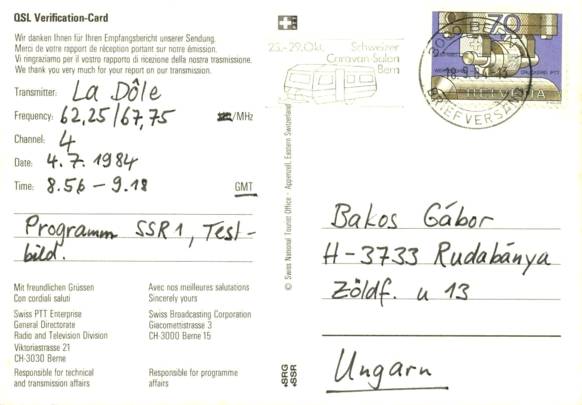 QSL Verification-Card
Wir danken Ihnen für Ihren Empfangsbericht unserer Sendung.
Merci de votre rapport de réception portant sur notre émission.
Vi ringraziamo per il vostro rapporto di ricezione della nostra trasmissione.
We thank you very much for your report on our transmission.
Transmitter: La Dôle
Frequency: 62,25/67,75 /MHz
Channel: 4
Date: 4.7.1984
Time: 8.56 – 9.18 GMT
Programm SSR 1, Test-
bild.
Mit freundlichen Grüssen
Con cordiali saluti
Swiss PTT Enterprise
General Directorate
Radio and Television Division
Viktoriastrasse 21
CH-3030 Berne
Responsible for technical
and transmission affairs
Avec nos meilleures salutations
Sincerely yours
Swiss Broadcasting Corporation
Giacomettistrasse 3
CH-3000 Berne 15
Responsible for programme
affairs
© Swiss National Tourist Office - Appenzell, Eastern Switzerland
SRG
SSR
23.-29.Okt. Schweizer
Caravan-Salon
Bern
70
3000 BERN
BRIEFVERSAND
HELVETIA
Bakos Gábor
H-3733 Rudabánya
Zöldf. u 13
Ungarn